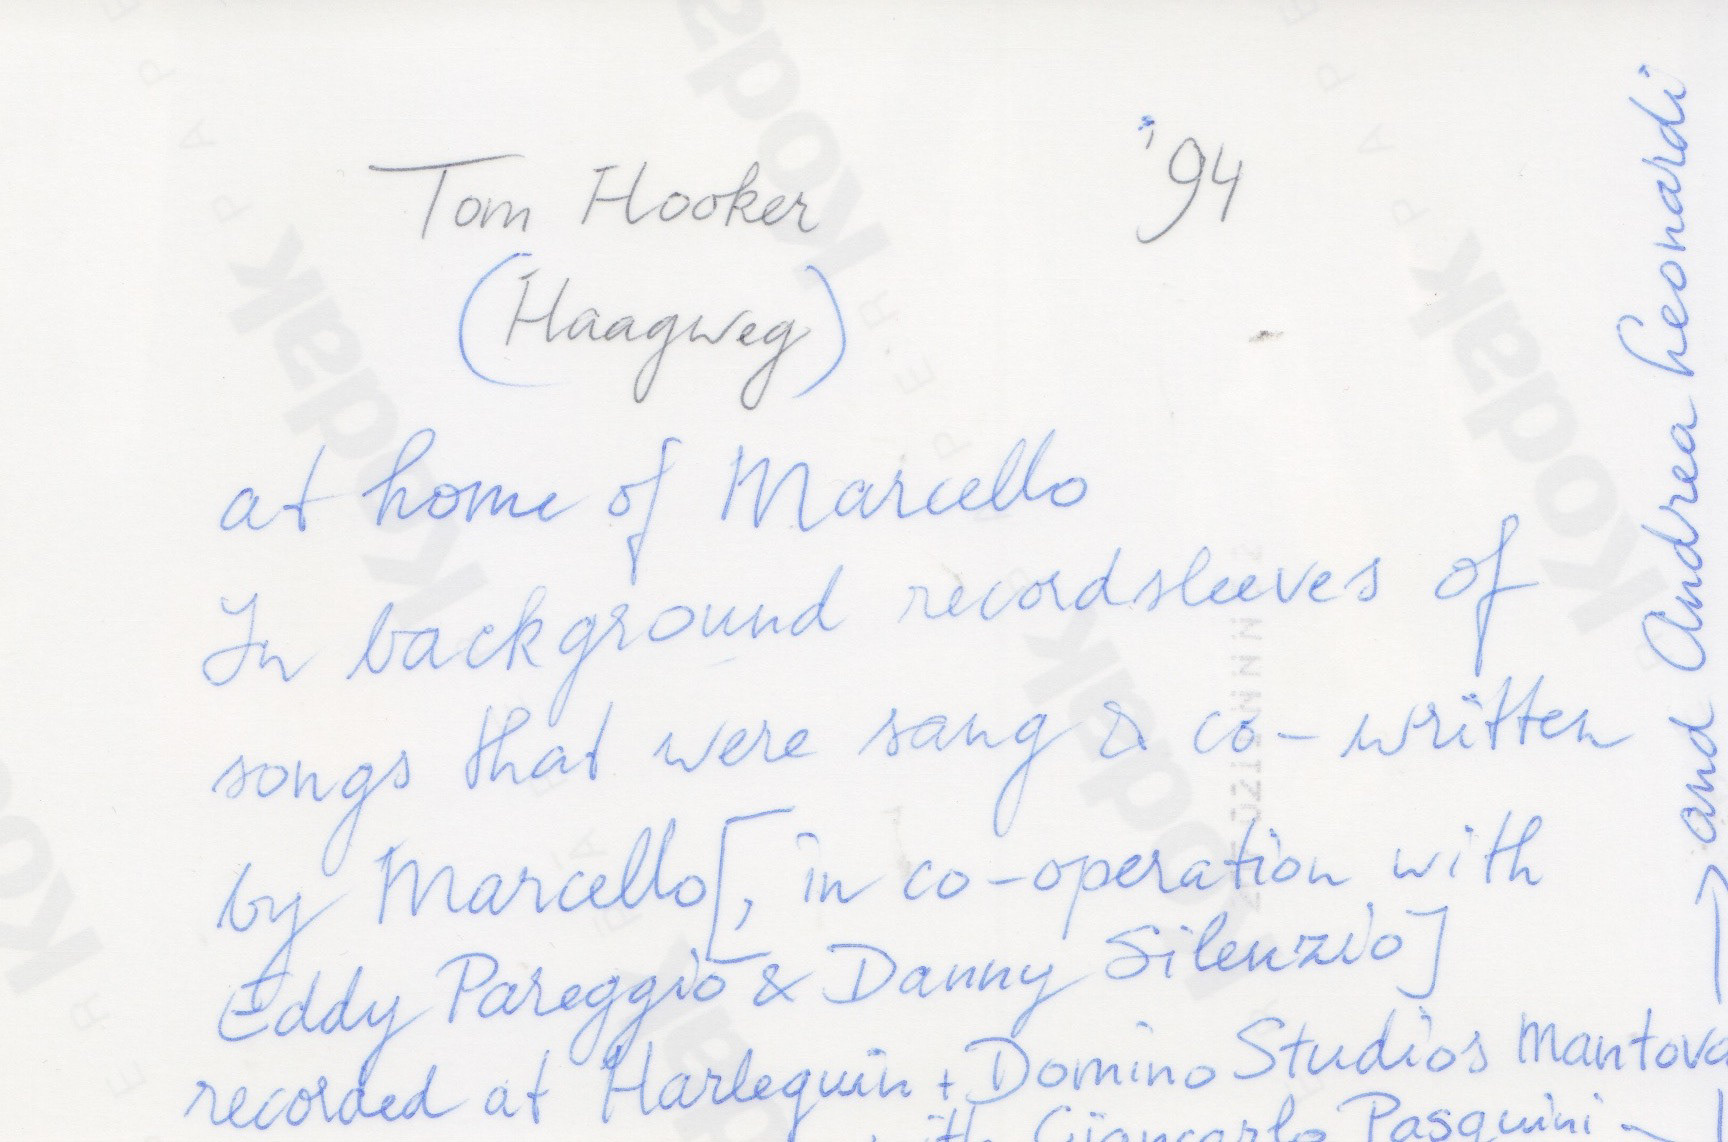 Tom Hooker '94
(Haagweg)
at home of Marcello
In background recordsleeves of
songs that were sang & co-written
by Marcello [, in co-operation with
Eddy Pareggio & Danny Silenzio]
recorded at Harlequin + Domino Studios Mantova
with Giancarlo Pasquini
→ and Andrea Leonardi
Kodak
Kodak
Kodak
Kodak
Kodak
Kodak
Kodak